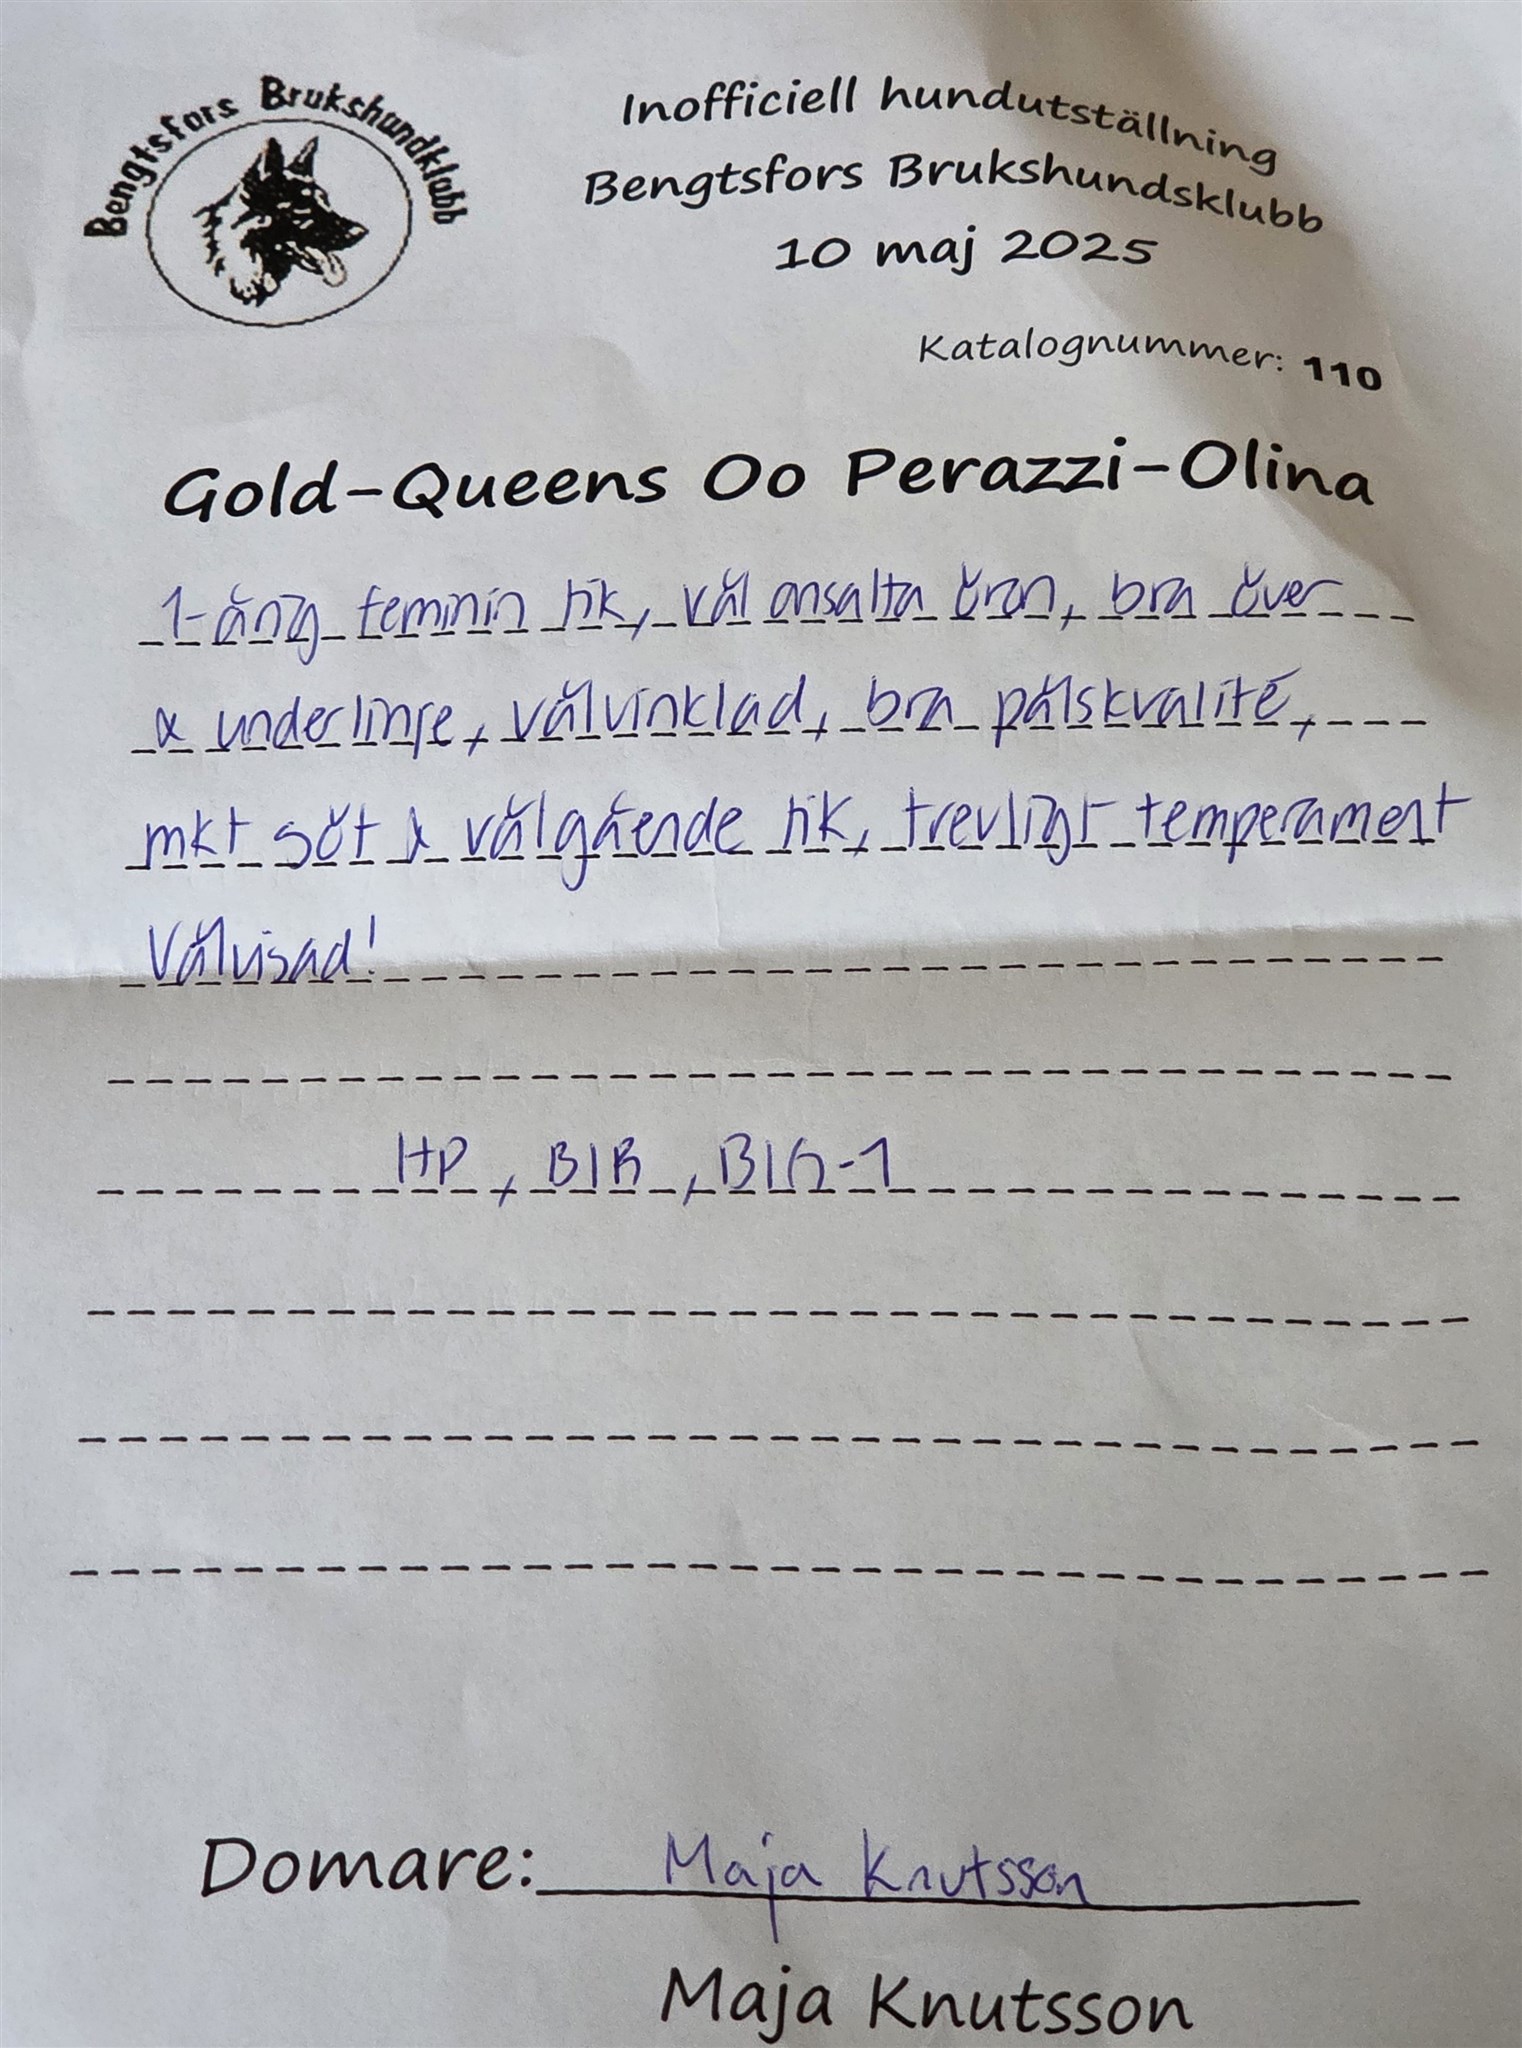 Bengtsfors Brukshundklubb
Inofficiell hundutställning
Bengtsfors Brukshundsklubb
10 maj 2025
Katalognummer: 110
Gold-Queens Oo Perazzi-Olina
1-årig feminin tik, väl ansatta öron, bra över
& underlinje, välvinklad, bra pälskvalité,
mkt söt & välgående tik, trevligt temperament
Välvisad!
HP, BIR, BIG-1
Domare: Maja Knutsson
Maja Knutsson